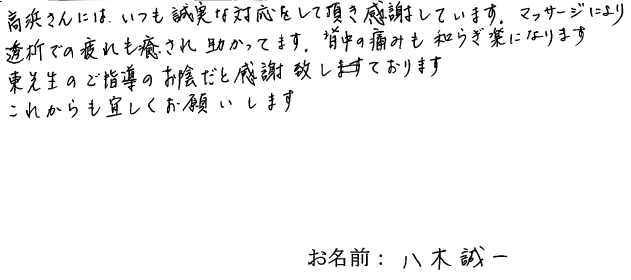 高浜さんには、いつも誠実な対応をして頂き感謝しています。マッサージにより
透析での疲れも癒され助かってます。背中の痛みも和らぎ楽になります
東先生のご指導のお陰だと感謝致しますております
これからも宜しくお願いします
お名前：八木誠一